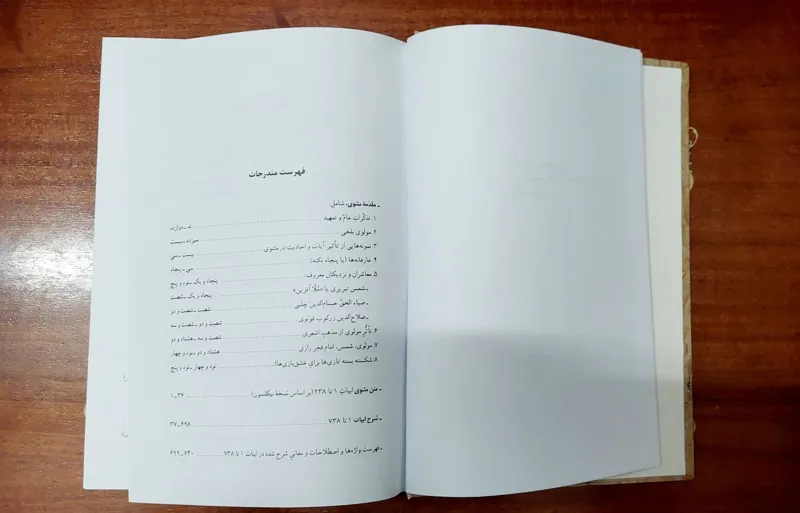 فهرست مندرجات
ـ مقدمهٔ مثنوی، شامل:
۱. تذکّراتِ عامّ و تمهید نه ـ دوازده
۲. مولوی بلخی سیزده ـ بیست
۳. نمونه‌هایی از تأثیر آیات و احادیث در مثنوی بیست ـ سی
۴. عارفانه‌ها (یا پنجاه نکته) سی ـ پنجاه
۵. معاشران و نزدیکان معروف: پنجاه و یک ـ نود و پنج
ـ شمس تبریزی یا «مُلّا آفرین» پنجاه و یک ـ شصت
ـ ضیاء الحق حسام‌الدین چلبی شصت ـ شصت و دو
ـ صلاح‌الدین زرکوب قونوی شصت و دو ـ شصت و سه
۶. تأثّر مولوی از مذهب اشعری شصت و سه ـ هشتاد و دو
۷. مولوی، شمس، امام فخر رازی هشتاد و دو ـ نود و چهار
۸. شکسته بسته تازی‌ها برای عشق‌بازی‌ها! نود و چهار ـ نود و پنج
ـ متن مثنوی ابیات ۱ تا ۱۲۳۸ (بر اساس نسخهٔ نیکلسون) ۱ـ۳۶
ـ شرح ابیات ۱ تا ۷۳۸ ۳۷ـ۶۹۸
ـ فهرست واژه‌ها و اصطلاحات و معانی شرح شده در ابیات ۱ تا ۷۳۸ ۶۹۹ـ۷۴۰